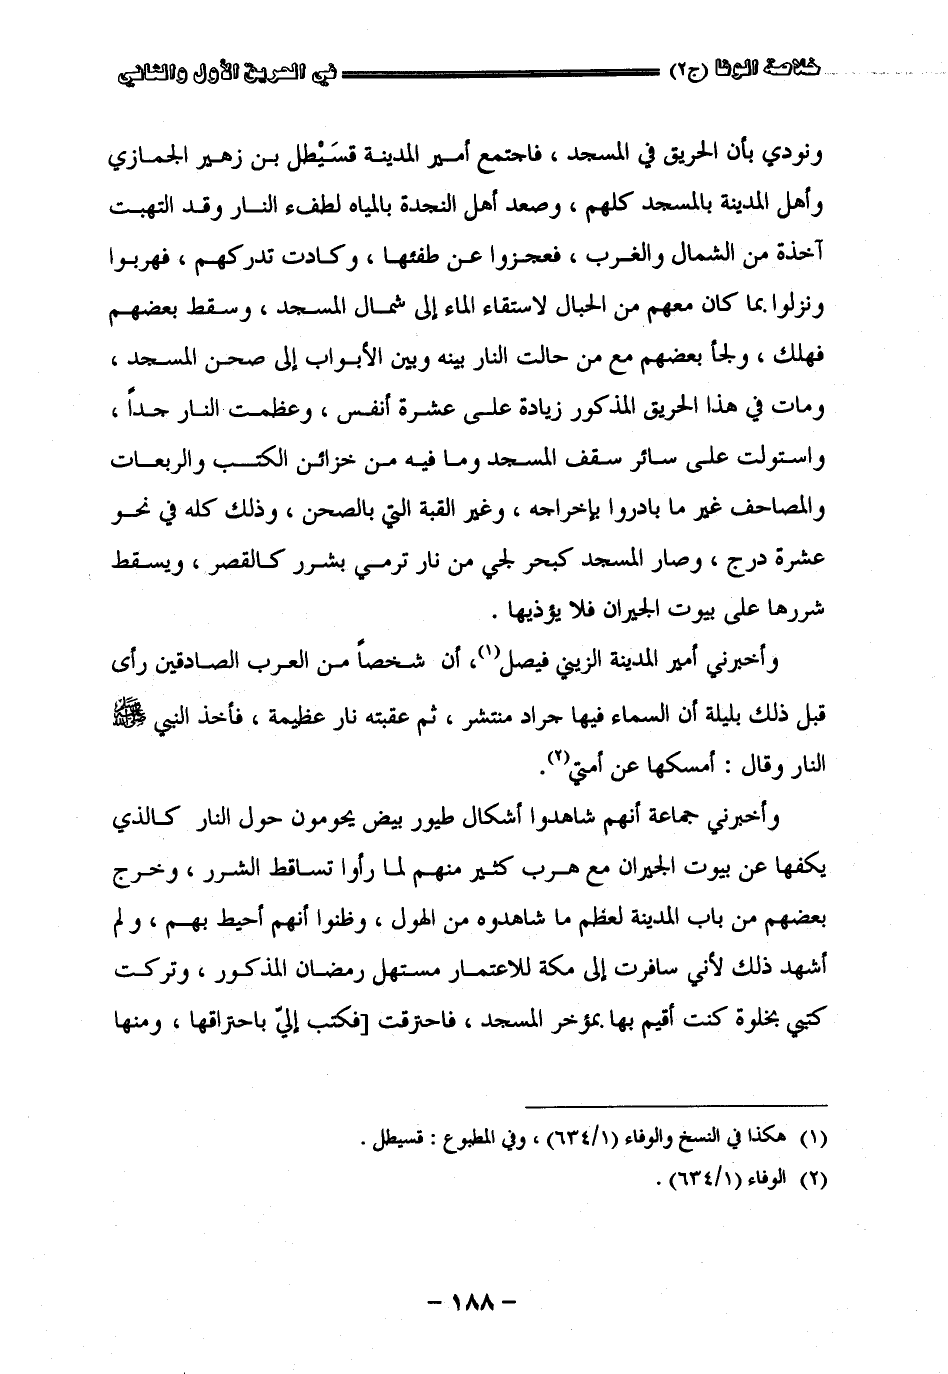 خلاصة الوفا (ج٢) في الحريق الأول والثاني
ونودي بأن الحريق في المسجد ، فاجتمع أمير المدينة قسَيْطل بن زهير الجمازي
وأهل المدينة بالمسجد كلهم ، وصعد أهل النجدة بالمياه لطفء النار وقد التهبت
آخذة من الشمال والغرب ، فعجزوا عن طفئها ، وكادت تدركهم ، فهربوا
ونزلوا بما كان معهم من الحبال لاستقاء الماء إلى شمال المسجد ، وسقط بعضهم
فهلك ، ولجأ بعضهم مع من حالت النار بينه وبين الأبواب إلى صحن المسجد ،
ومات في هذا الحريق المذكور زيادة على عشرة أنفس ، وعظمت النار جداً ،
واستولت على سائر سقف المسجد وما فيه من خزائن الكتب والربعات
والمصاحف غير ما بادروا بإخراجه ، وغير القبة التي بالصحن ، وذلك كله في نحو
عشرة درج ، وصار المسجد كبحر لجي من نار ترمي بشرر كالقصر ، ويسقط
شررها على بيوت الجيران فلا يؤذيها .
وأخبرني أمير المدينة الزيني فيصل(١)، أن شخصاً من العرب الصادقين رأى
قبل ذلك بليلة أن السماء فيها جراد منتشر ، ثم عقبته نار عظيمة ، فأخذ النبي ﷺ
النار وقال : أمسكها عن أمتي(٢).
وأخبرني جماعة أنهم شاهدوا أشكال طيور بيض يحومون حول النار كالذي
يكفها عن بيوت الجيران مع هرب كثير منهم لما رأوا تساقط الشرر ، وخرج
بعضهم من باب المدينة لعظم ما شاهدوه من الهول ، وظنوا أنهم أحيط بهم ، ولم
أشهد ذلك لأني سافرت إلى مكة للاعتمار مستهل رمضان المذكور ، وتركت
كتبي بخلوة كنت أقيم بها بمؤخر المسجد ، فاحترقت [فكتب إليّ باحتراقها ، ومنها
(١) هكذا في النسخ والوفاء (٦٣٤/١) ، وفي المطبوع : قسيطل .
(٢) الوفاء (٦٣٤/١) .
- ١٨٨ -